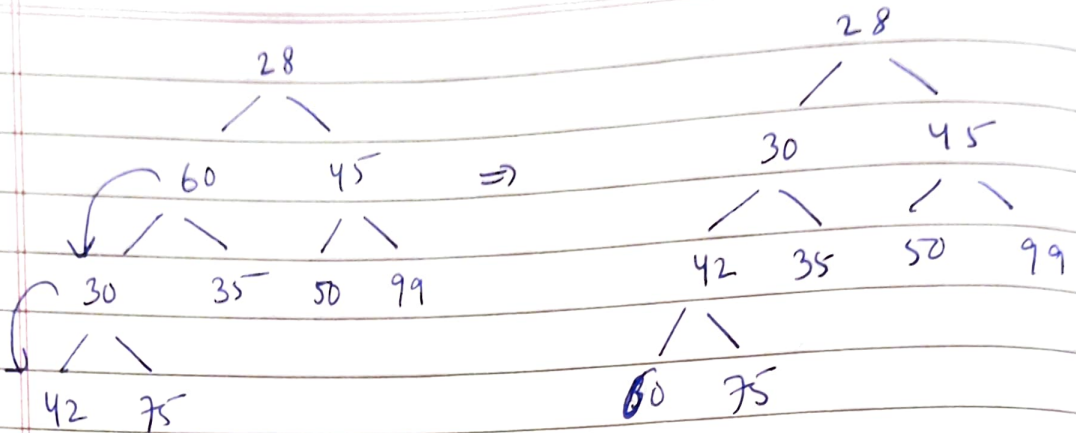 28
60 45
30 35 50 99
42 75
⇒
28
30 45
42 35 50 99
60 75